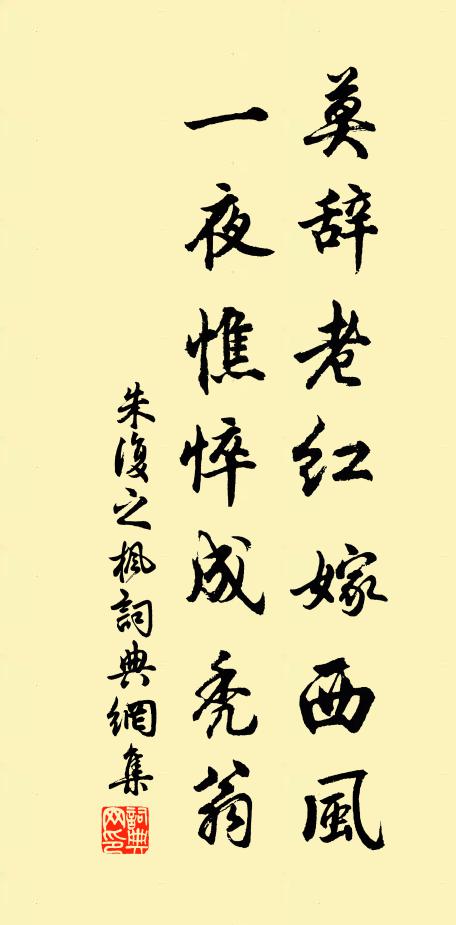 莫辞老红嫁西風
一夜憔悴成禿翁
朱復之楓詞典網集
詞典网印